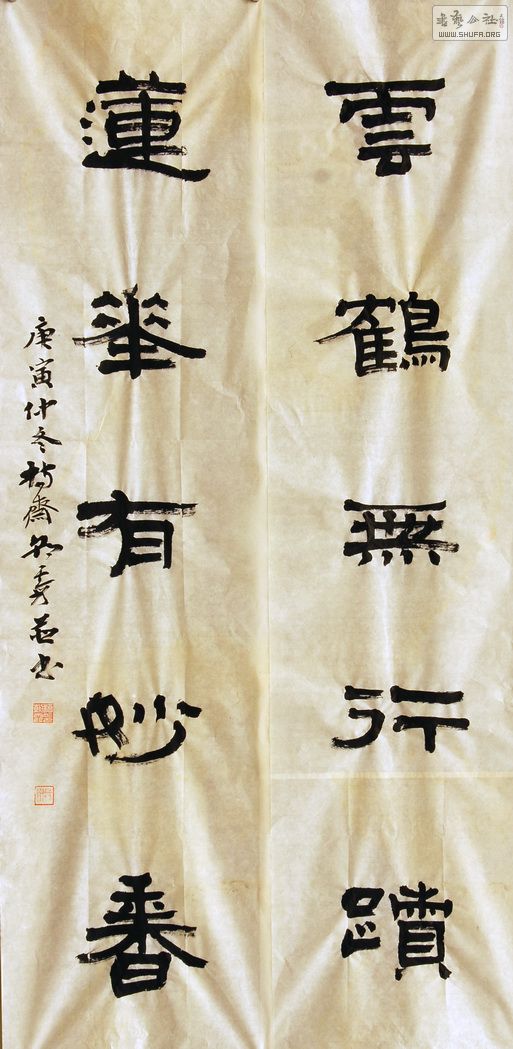 雲鶴無行蹟
蓮華有妙香
庚寅仲冬
書藝公社
WWW.SHUFA.ORG